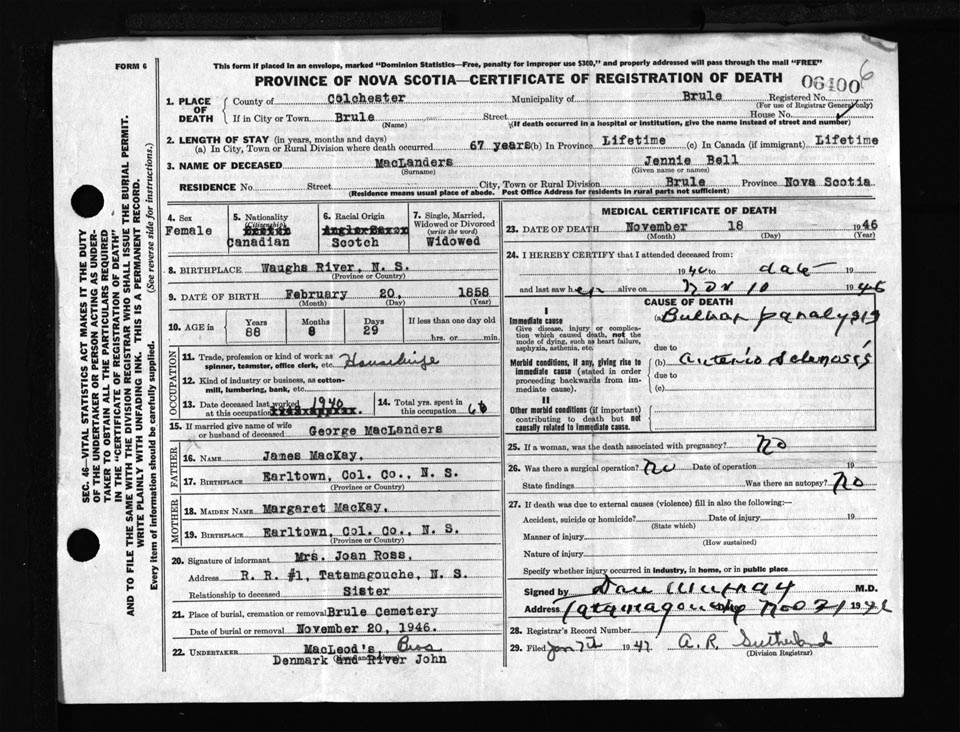 FORM 6
This form if placed in an envelope, marked "Dominion Statistics—Free, penalty for improper use $300," and properly addressed will pass through the mail "FREE"
PROVINCE OF NOVA SCOTIA—CERTIFICATE OF REGISTRATION OF DEATH
06400 6
1. PLACE OF DEATH
County of Colchester Municipality of Brule Registered No.
(For use of Registrar General only)
If in City or Town Brule Street House No.
(Name) (If death occurred in a hospital or institution, give the name instead of street and number)
2. LENGTH OF STAY (in years, months and days)
(a) In City, Town or Rural Division where death occurred 67 years (b) In Province Lifetime (c) In Canada (if immigrant) Lifetime
3. NAME OF DECEASED MacLanders Jennie Bell
(Surname) (Given name or names)
RESIDENCE No. Street City, Town or Rural Division Brule Province Nova Scotia
(Residence means usual place of abode. Post Office Address for residents in rural parts not sufficient)
SEC. 46—VITAL STATISTICS ACT MAKES IT THE DUTY
OF THE UNDERTAKER OR PERSON ACTING AS UNDER-
TAKER TO OBTAIN ALL THE PARTICULARS REQUIRED
IN THE "CERTIFICATE OF REGISTRATION OF DEATH"
AND TO FILE THE SAME WITH THE DIVISION REGISTRAR WHO SHALL ISSUE THE BURIAL PERMIT.
WRITE PLAINLY WITH UNFADING INK. THIS IS A PERMANENT RECORD.
Every item of information should be carefully supplied. (See reverse side for instructions.)
4. Sex
Female
5. Nationality
(Citizenship)
Canadian
6. Racial Origin
Anglo-Saxon
Scotch
7. Single, Married,
Widowed or Divorced
(write the word)
Widowed
8. BIRTHPLACE Waughs River, N. S.
(Province or Country)
9. DATE OF BIRTH February 20, 1858
(Month) (Day) (Year)
10. AGE in Years Months Days If less than one day old
88 8 29 hrs. or min.
OCCUPATION
11. Trade, profession or kind of work as
spinner, teamster, office clerk, etc.
12. Kind of industry or business, as cotton-
mill, lumbering, bank, etc.
13. Date deceased last worked 1940
at this occupation
14. Total yrs. spent in
this occupation
15. If married give name of wife
or husband of deceased George MacLanders
FATHER
16. NAME James MacKay,
17. BIRTHPLACE Earltown, Col. Co., N. S.
(Province or Country)
MOTHER
18. MAIDEN NAME Margaret MacKay,
19. BIRTHPLACE Earltown, Col. Co., N. S.
(Province or Country)
20. Signature of informant Mrs. Joan Ross,
Address R. R. #1, Tatamagouche, N. S.
Relationship to deceased Sister
21. Place of burial, cremation or removal Brule Cemetery
Date of burial or removal November 20, 1946.
22. UNDERTAKER MacLeod's Bros
Denmark and River John
MEDICAL CERTIFICATE OF DEATH
23. DATE OF DEATH November 18 1946
(Month) (Day) (Year)
24. I HEREBY CERTIFY that I attended deceased from:
1946 to date 19
and last saw her alive on Nov 10 1946
CAUSE OF DEATH
I
Immediate cause
Give disease, injury or complica-
tion which caused death, not the
mode of dying, such as heart failure,
asphyxia, asthenia, etc.
(a) Bulbar paralysis
due to
Morbid conditions, if any, giving rise to
immediate cause (stated in order
proceeding backwards from im-
mediate cause).
(b) Arterio Sclerosis
due to
(c)
II
Other morbid conditions (if important)
contributing to death but not
causally related to immediate cause.
25. If a woman, was the death associated with pregnancy? No
26. Was there a surgical operation? No Date of operation 19
State findings Was there an autopsy? No
27. If death was due to external causes (violence) fill in also the following:—
Accident, suicide or homicide? Date of injury 19
(State which)
Manner of injury
(How sustained)
Nature of injury
Specify whether injury occurred in industry, in home, or in public place
Signed by Dan Murray M.D.
Address Tatamagouche Nov 21 1946
28. Registrar's Record Number
29. Filed Jan 7th 1947 A. R. Sutherland
(Division Registrar)